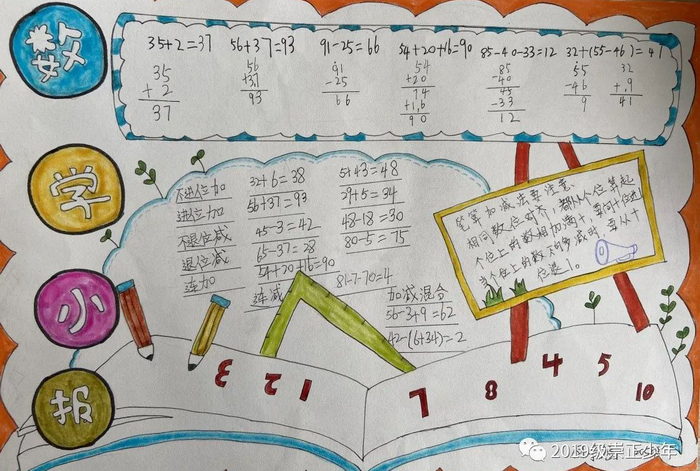 数
学
小
报
35+2=37 56+37=93 91-25=66 54+20+16=90 85-40-33=12 32+(55-46)=41
35
+2
37
56
+37
93
91
-25
66
54
+20
74
+16
90
85
-40
45
-33
12
55
-46
9
32
+9
41
不进位加 32+6=38 5+43=48
进位加 56+37=93 29+5=34
不退位减 45-3=42 48-18=30
退位减 65-37=28 80-5=75
连加 54+20+16=90
连减 81-7-70=4
加减混合
56-3+9=62
42-(6+34)=2
笔算加减法要注意:
相同数位对齐,都从个位算起
个位上的数相加满十,要向十位进1
个位上的数不够减时,要从十
位退1。
3 2 1 7 8 4 5 10
2019级崇正少年